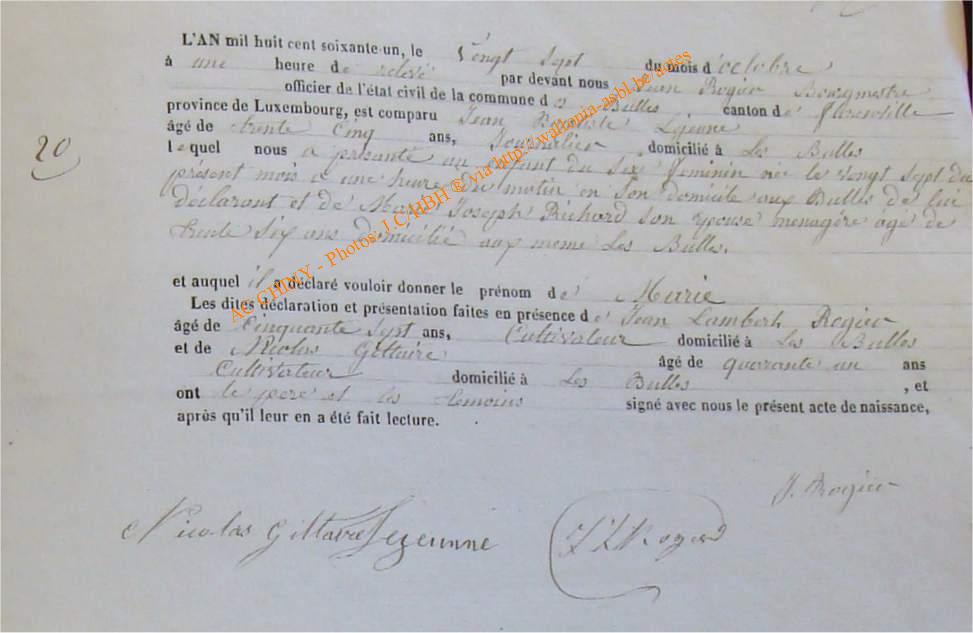 L'AN mil huit cent soixante-un, le Vingt Sept du mois d'octobre
à une heure de relevé par devant nous Jean Rogier Bourgmestre
officier de l'état civil de la commune des Bulles canton de Florenville
province de Luxembourg, est comparu Jean Baptiste Lejeune
âgé de trente Cinq ans, Journalier domicilié à Les Bulles
20
lequel nous a présenté un enfant du Sex feminin née le Vingt Sept du
présent mois a une heure du matin en Son domicile aux Bulles de lui
déclarant et de Marie Joseph Richard son épouse menagère âgé de
trente Six ans domicilié aux meme Les Bulles.
et auquel il a déclaré vouloir donner le prénom de Marie
Les dites déclaration et présentation faites en présence de Jean Lambert Rogier
âgé de Cinquante Sept ans, Cultivateur domicilié à Les Bulles
et de Nicolas Giltaire âgé de quarante un ans
Cultivateur domicilié à Les Bulles, et
ont le pere et les temoins signé avec nous le présent acte de naissance,
après qu'il leur en a été fait lecture.
J. Rogier
Nicolas Giltaire Lejeunne
AC CHINY - Photos: J.C/HBH ® via http://wallonia-asbl.be/actes